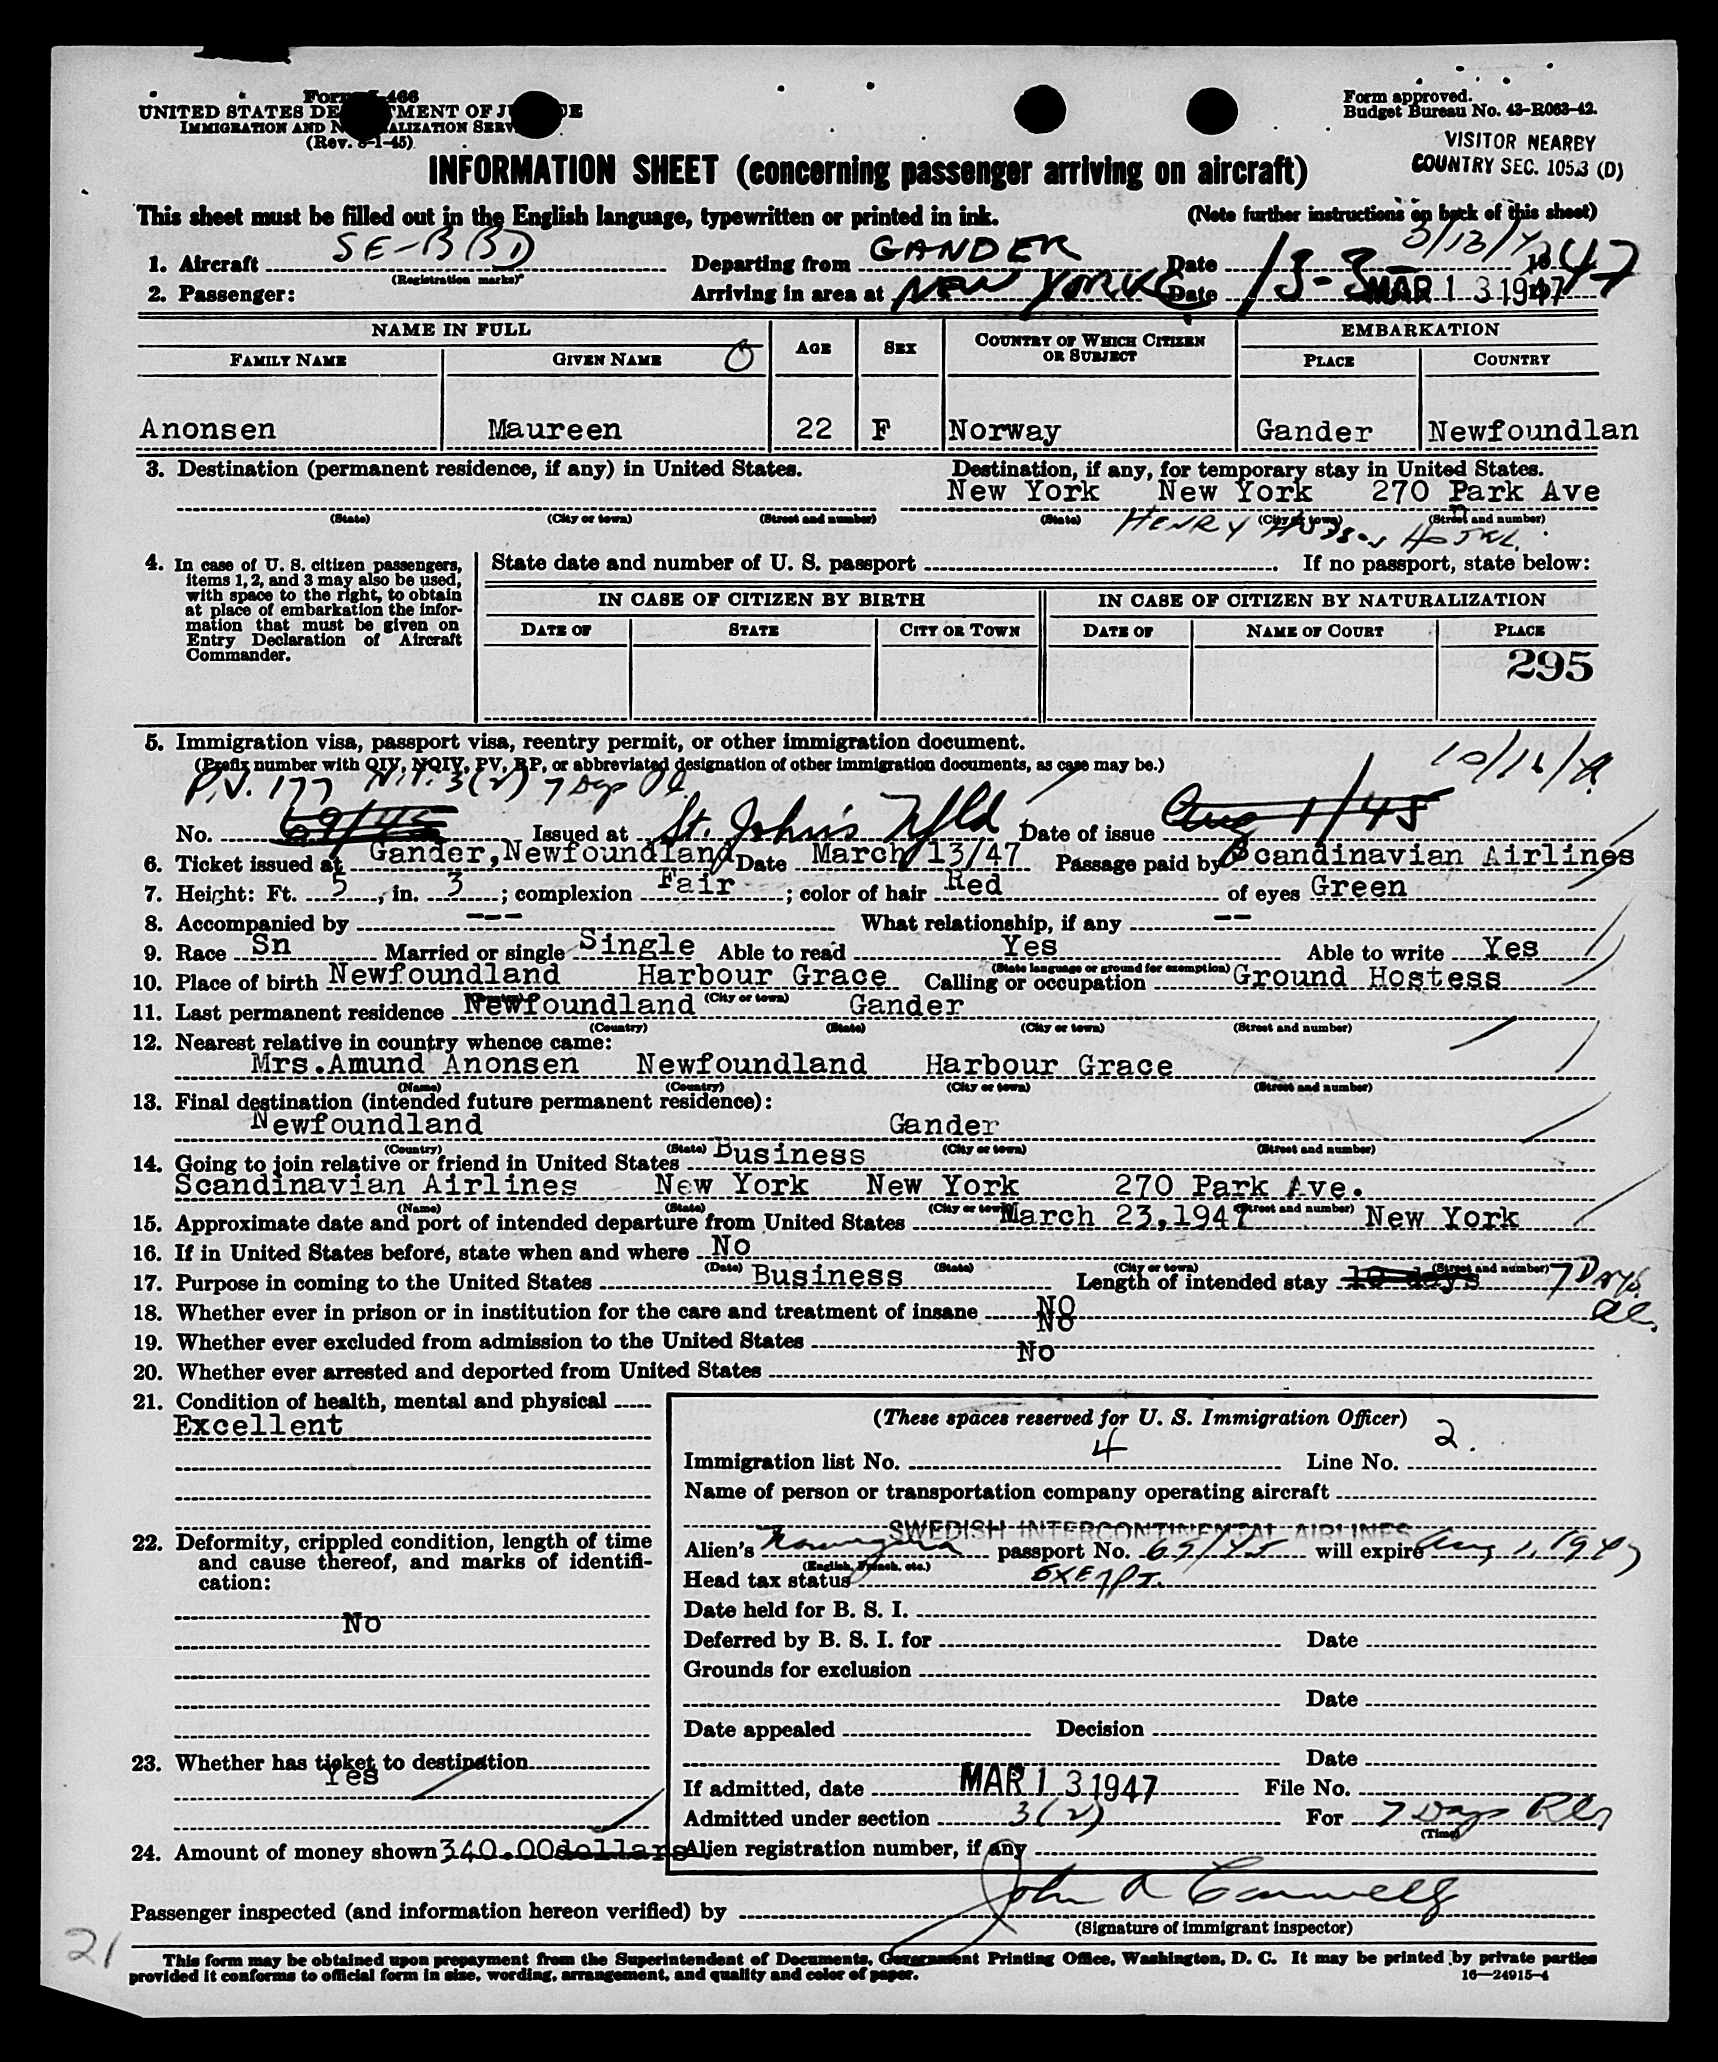 Form I-466
UNITED STATES DEPARTMENT OF JUSTICE
IMMIGRATION AND NATURALIZATION SERVICE
(Rev. 6-1-45)
Form approved.
Budget Bureau No. 43-R063-42.
VISITOR NEARBY
COUNTRY SEC. 105.3 (D)
INFORMATION SHEET (concerning passenger arriving on aircraft)
This sheet must be filled out in the English language, typewritten or printed in ink. (Note further instructions on back of this sheet)
1. Aircraft SE-BBD Departing from GANDER Date 3/13/47 13-3-1947
(Registration marks)
2. Passenger: Arriving in area at NEW YORK Date MAR 13 1947
NAME IN FULL AGE SEX COUNTRY OF WHICH CITIZEN OR SUBJECT EMBARKATION
FAMILY NAME GIVEN NAME PLACE COUNTRY
Anonsen Maureen 22 F Norway Gander Newfoundlan
3. Destination (permanent residence, if any) in United States. Destination, if any, for temporary stay in United States.
New York New York 270 Park Ave
(State) (City or town) (Street and number) (State) (City or town) (Street and number)
HENRY HUDSON HOTEL.
4. In case of U. S. citizen passengers, items 1, 2, and 3 may also be used, with space to the right, to obtain at place of embarkation the information that must be given on Entry Declaration of Aircraft Commander.
State date and number of U. S. passport . If no passport, state below:
IN CASE OF CITIZEN BY BIRTH IN CASE OF CITIZEN BY NATURALIZATION
DATE OF STATE CITY OR TOWN DATE OF NAME OF COURT PLACE
295
5. Immigration visa, passport visa, reentry permit, or other immigration document.
(Prefix number with QIV, NQIV, PV, RP, or abbreviated designation of other immigration documents, as case may be.)
P.V. 177 N.I. 3(2) 7 Days
No. 69/45 Issued at St. John's Nfld Date of issue Aug 1/45
6. Ticket issued at Gander,Newfoundland Date March 13/47 Passage paid by Scandinavian Airlines
7. Height: Ft. 5, in. 3; complexion Fair; color of hair Red of eyes Green
8. Accompanied by --- What relationship, if any --
9. Race Sn Married or single Single Able to read Yes Able to write Yes
(State language or ground for exemption)
10. Place of birth Newfoundland Harbour Grace Calling or occupation Ground Hostess
(Country) (City or town)
11. Last permanent residence Newfoundland Gander
(Country) (State) (City or town) (Street and number)
12. Nearest relative in country whence came:
Mrs.Amund Anonsen Newfoundland Harbour Grace
(Name) (Country) (City or town) (Street and number)
13. Final destination (intended future permanent residence):
Newfoundland Gander
(Country) (State) (City or town) (Street and number)
14. Going to join relative or friend in United States Business
Scandinavian Airlines New York New York 270 Park Ave.
(Name) (State) (City or town) (Street and number)
15. Approximate date and port of intended departure from United States March 23,1947 New York
16. If in United States before, state when and where No
(Date) (State) (City or town) (Street and number)
17. Purpose in coming to the United States Business Length of intended stay 10 days 7 DAYS.
18. Whether ever in prison or in institution for the care and treatment of insane NO
19. Whether ever excluded from admission to the United States No
20. Whether ever arrested and deported from United States No
21. Condition of health, mental and physical
Excellent
22. Deformity, crippled condition, length of time and cause thereof, and marks of identification:
No
23. Whether has ticket to destination
Yes
24. Amount of money shown 340.00dollars
(These spaces reserved for U. S. Immigration Officer)
Immigration list No. 4 Line No. 2.
Name of person or transportation company operating aircraft
SWEDISH INTERCONTINENTAL AIRLINES
Alien's Norwegian passport No. 69/45 will expire Aug 1, 1947
(English, French, etc.)
Head tax status EXEMPT.
Date held for B. S. I.
Deferred by B. S. I. for Date
Grounds for exclusion
Date
Date appealed Decision
Date
If admitted, date MAR 13 1947 File No.
Admitted under section 3(2) For 7 Days
(Time)
Alien registration number, if any
Passenger inspected (and information hereon verified) by
(Signature of immigrant inspector)
21
This form may be obtained upon prepayment from the Superintendent of Documents, Government Printing Office, Washington, D. C. It may be printed by private parties
provided it conforms to official form in size, wording, arrangement, and quality and color of paper. 16—24915-4